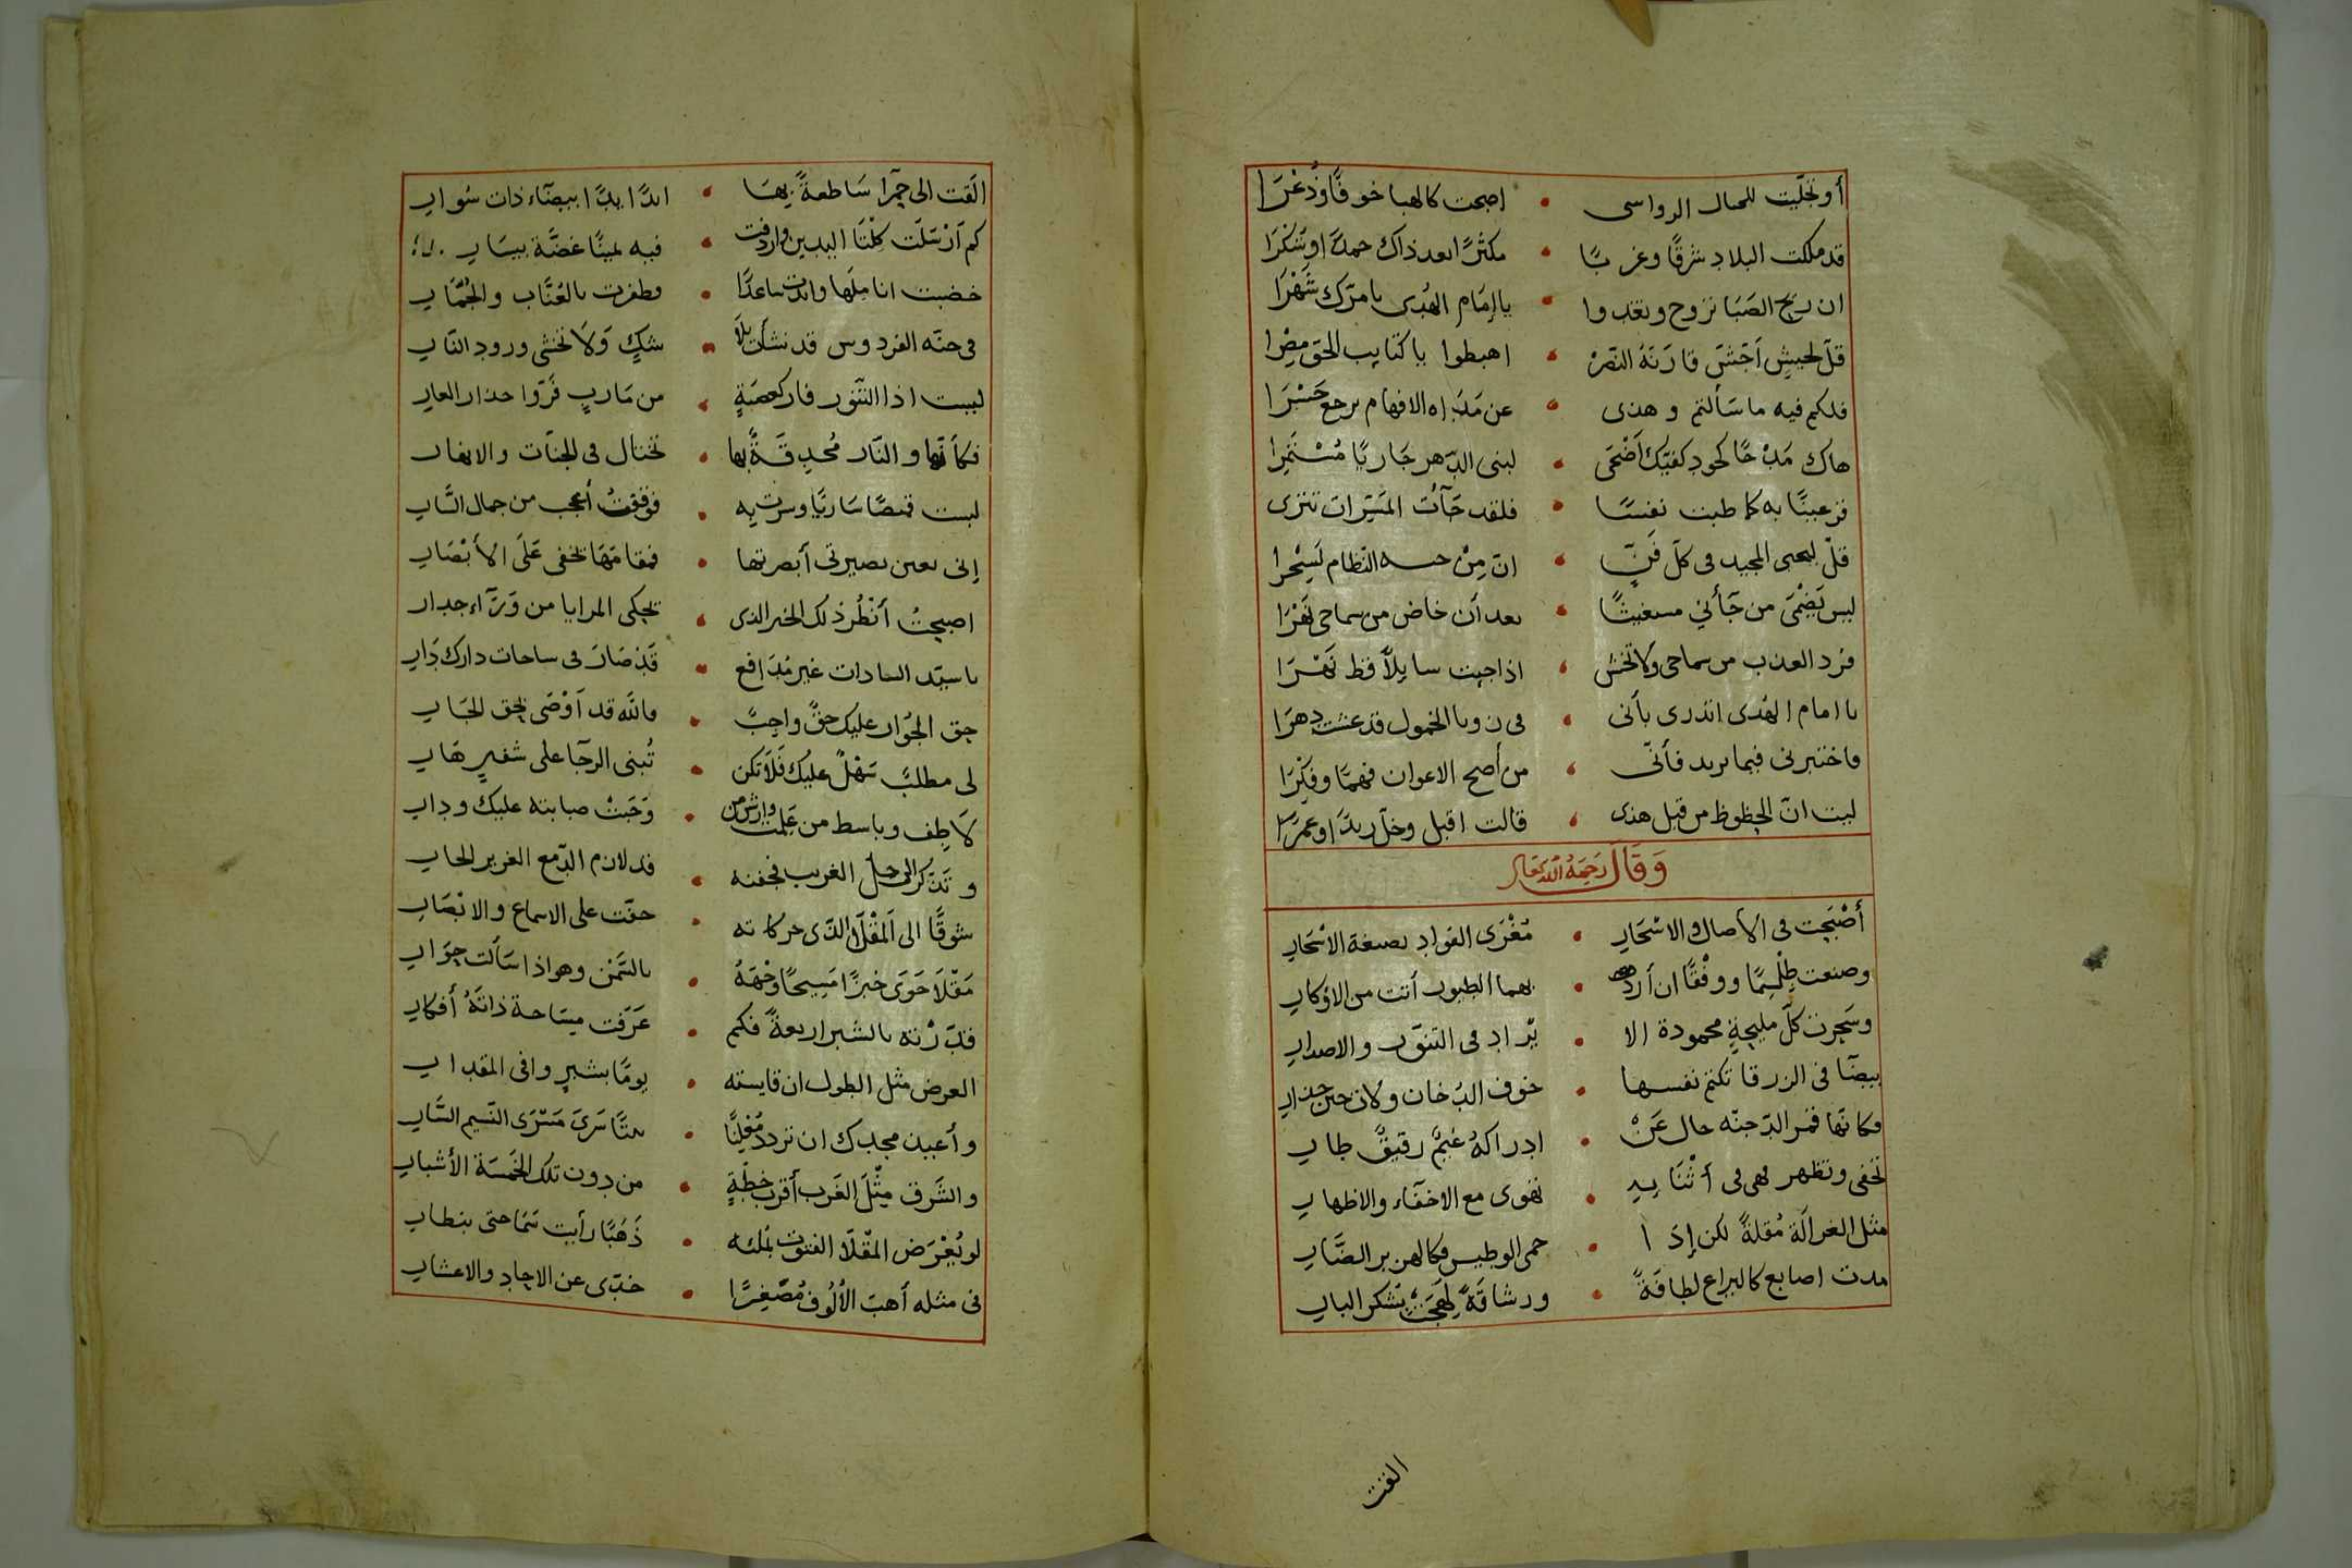 أو تجلّيت للجبال الرواسى • اصبحت كالهبا خوفًا وذعْرَا
قد ملكت البلاد شرقًا وغربًا • مكثرًا بعد ذاك حمدًا وشكْرَا
ان ريح الصَبَا تروح وتغدوا • يا إمَام الهُدى بامرك شَهْرَا
قلّ لجيشٍ أجَشّ قارَنَهُ النّصْر • اهبطوا يا كتايب الحق مِصْرا
فلكم فيه ما سَألتم وهذى • عن مَدَاه الافهام ترجع حَسْرَا
هاك مَدْحًا لجود كفيّك أضْحَى • لبنى الدّهر جَاريًا مُسْتَمِرا
قرّ عينًا به كما طبت نفسًا • فلقد جَآءت المَسَرّات تترى
قلّ ليحيى المجيد فى كلّ فَنٍّ • انّ مِنْ حسنه النّظام لَسِحْرا
ليس يَضْمَى من جَأني مستغيثًا • بعد أن خاض من سماحى نَهْرَا
فرد العذب من سماحى ولا تخش • اذا جيت سايِلاً قط نَهْرَا
يا امام الهُدى اتدرى بأنى • فى زوايا الخمول قد عشت دهرَا
فاختبرنى فيما تريد فأنّى • من أصح الاعوان فهمًا وفِكْرَا
ليت انّ الحظوظ من قبل هذى • قالت اقبل وخلّ زيدًا وعمرَا
وَقَالَ رَحِمَهُ اللّه تعَالى
أصْبَحت فى الأصال والاسْحَارِ • مُغْرَى الفواد بصنعة الاسْحَارِ
وصنعت طِلْسِمًا ووفْقًا ان أرد • بهما الطيور أتت من الاوكارِ
وسَجرت كلّ مليحةٍ محمودة الا • يْرادِ فى التنّور والاصدارِ
بيضآ فى الزرقا تكتم نفسها • خوف الدُخان ولات حين حذارِ
فكانّها قمر الدّجنّه حال عَنْ • ادراكهُ غيمٌ رقيقٌ طارِ
تخفى وتظهر فهى فى أثْنَايِهِ • تقوى مع الاخفآء والاظهارِ
مثل الغزالَة مُقلةً لكن إذَا • حمى الوطيس فكالهزبر الضّارِ
مدت اصابع كاليراع لطافَةً • ورشاقَةً لهَجَتْ بشكر البارِ
القت
القَت الى جمرآ سَاطعةً بهَا • ابدًا يدًا بيضآء ذات سُوارِ
كم أرْسَلَت كلْتَا اليدين واردفت • فيه يمينًا غضَّة بيسَارِ
خضبت اناملَها وابدت ساعدًا • وطفرت بالعُنَّاب والجُمّارِ
فى جنّه الفردوس قد نشأت بلَا • شكٍ وَلَا تخشى ورود النّارِ
ليست اذا التنّور فار كعصَبةٍ • من مَاربٍ فَرّوا حذار العارِ
فكأنّها والنّار مُحدِقَةٌ بها • تختال فى الجنّات والانهارِ
لبست قمصًا سَاريًّا وسرت بِهِ • فوقفتُ أعجب من جمال السّارِ
إنى بعين بصيرتى أبصرتها • فمقامهَا تخفى عَلَى الأبْصَارِ
اصبحتُ أنْظُر ذلك الخبر الذى • تحكى المرايا من وَرَآء جدار
يا سيّد السادات غير مُدَافع • قَدْ صَارَ فى ساحات دارك دَارِ
حق الجُوار عليك حقٌ واجبٌ • واللّه قد أوْصَى بحق الجَارِ
لى مطلبٌ سَهْلٌ عليك فَلَا تكن • تُبنى الرجآ على شفيرٍ هَارِ
لَاطِف وباسط من عَلمت وارث من • وَجَبتْ صبابته عليك ودارِ
وتَدَكّر الرجل الغريب فجفنه • قد لازم الدّمع الغزير الجارِ
شوقًا الى المَقْلَا الذى حركاته • خفّت على الاسماع والابْصَارِ
مَقْلَا حَوَى خبزًا مَسِيحًا وَجْهَهُ • بالسَّمْن وهو اذا سَألت جوَارِ
قدّرْته بالشبر اربعةً فكم • عَرَفت مِسَاحة ذاتَهُ أفكارِ
العرض مثل الطول ان قايسته • يومًا بشبرٍ وافى المقدارِ
وأعيذ مجدك ان تردد مُفْلِيًّا • بيتًا سَرَىَ مَسْرَى النّسيم السّارِ
والشّرق مِثْلَ الغَرب أقرب خطّةٍ • من دون تلك الخمسَة الأشبارِ
لو يُعْرَض المقْلَا الفتوت بمُلئه • ذَهَبًا رأيت سَمَاحتى بنطارِ
فى مثله أهبَ الأُلُوف مُصَغِرًا • خدّى عن الاحادِ والاعشارِ